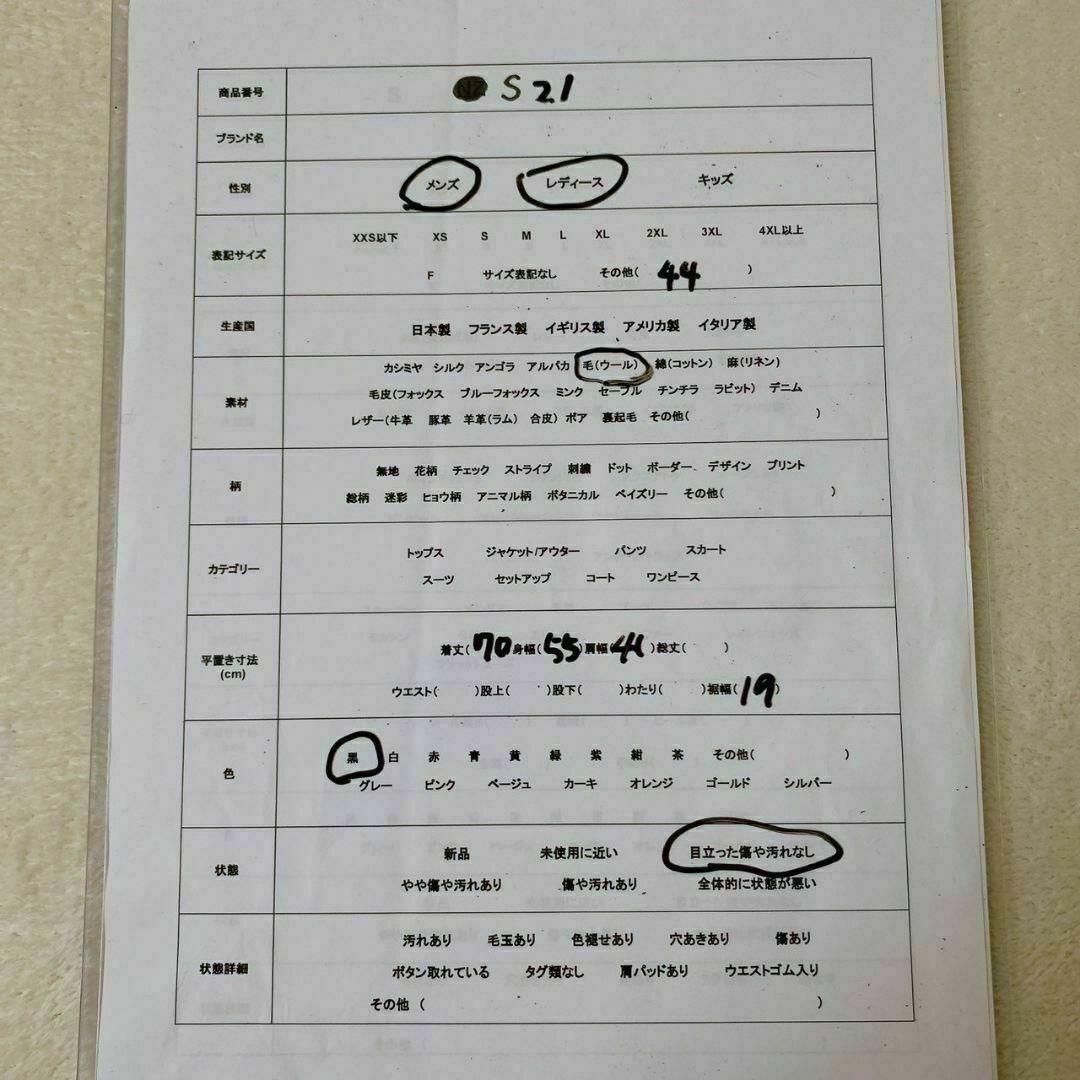 商品番号 S21
ブランド名
性別 メンズ レディース キッズ
表記サイズ
XXS以下 XS S M L XL 2XL 3XL 4XL以上
F サイズ表記なし その他( 44 )
生産国 日本製 フランス製 イギリス製 アメリカ製 イタリア製
素材
カシミヤ シルク アンゴラ アルパカ 毛(ウール) 綿(コットン) 麻(リネン)
毛皮(フォックス ブルーフォックス ミンク セーブル チンチラ ラビット) デニム
レザー(牛革 豚革 羊革(ラム) 合皮) ボア 裏起毛 その他( )
柄
無地 花柄 チェック ストライプ 刺繍 ドット ボーダー デザイン プリント
総柄 迷彩 ヒョウ柄 アニマル柄 ボタニカル ペイズリー その他( )
カテゴリー
トップス ジャケット/アウター パンツ スカート
スーツ セットアップ コート ワンピース
平置き寸法
(cm)
着丈( 70 身幅( 55 )肩幅( )総丈( )
ウエスト( )股上( )股下( )わたり( )裾幅( 19 )
色
黒 白 赤 青 黄 緑 紫 紺 茶 その他( )
グレー ピンク ベージュ カーキ オレンジ ゴールド シルバー
状態
新品 未使用に近い 目立った傷や汚れなし
やや傷や汚れあり 傷や汚れあり 全体的に状態が悪い
状態詳細
汚れあり 毛玉あり 色褪せあり 穴あきあり 傷あり
ボタン取れている タグ類なし 肩パッドあり ウエストゴム入り
その他 ( )